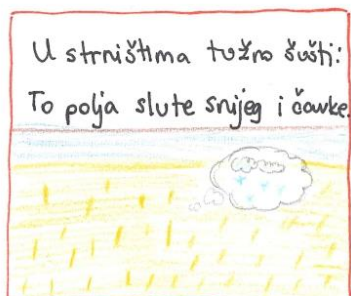 U strništima tužno šušti:
To polja slute snijeg i čavke.